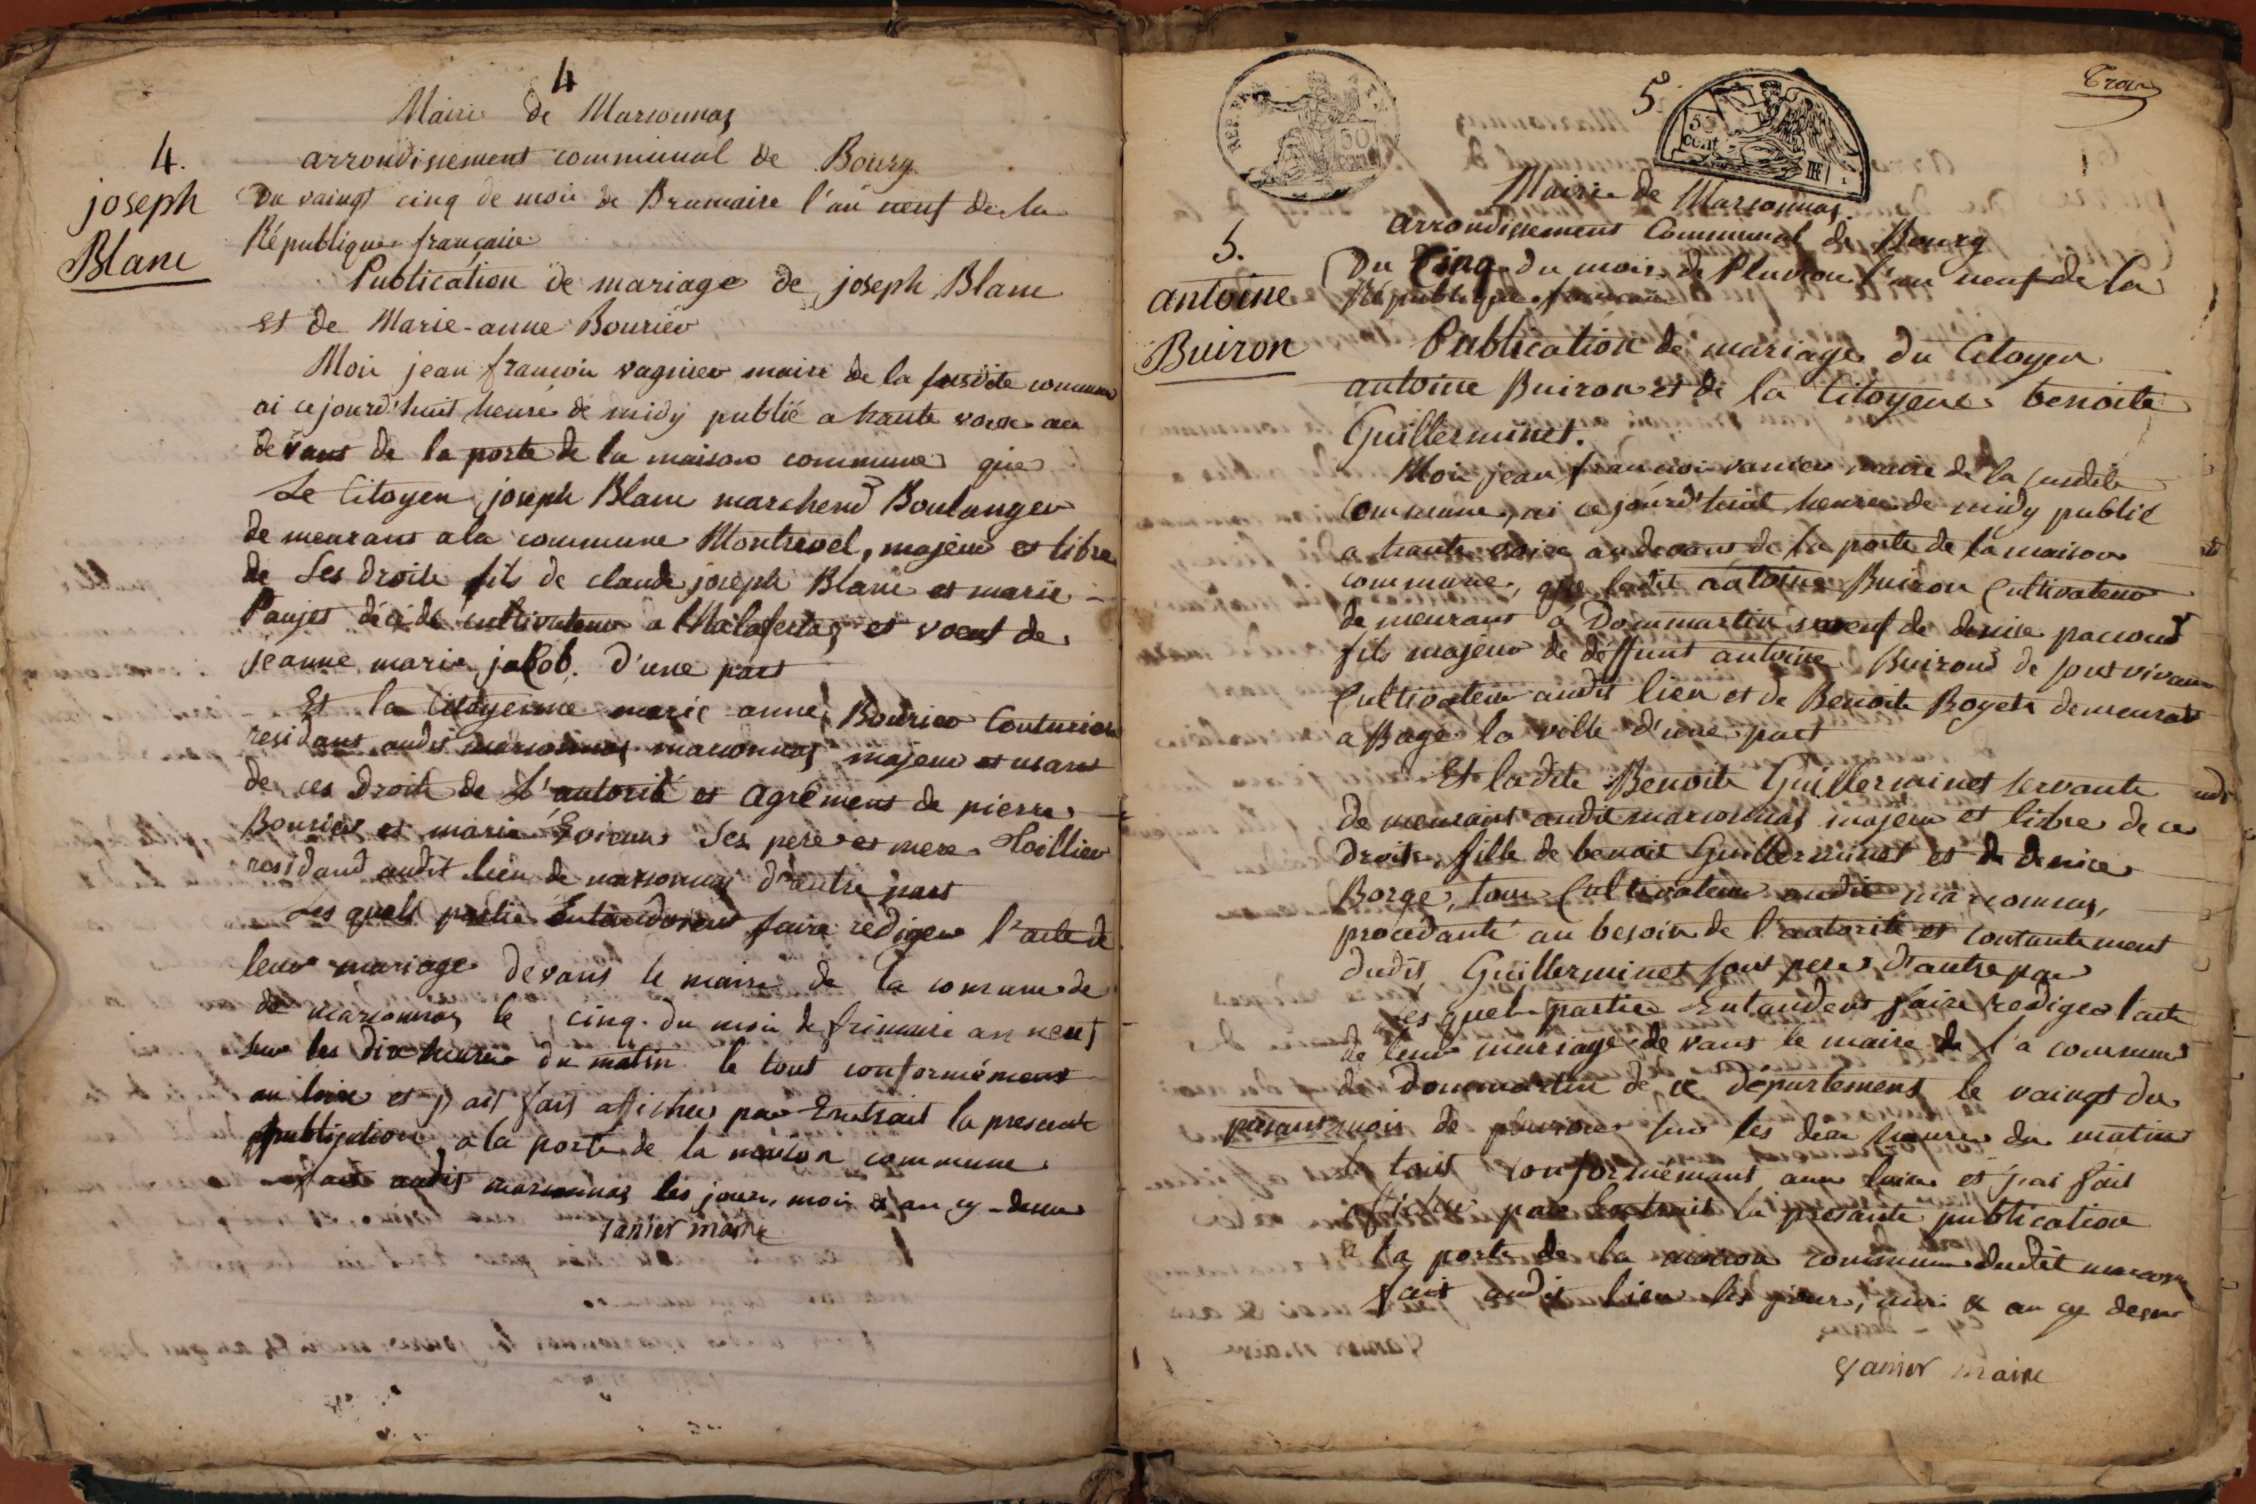 4
Mairie de Marsonnas
4.
joseph
Blanc
arrondissement communal de Bourg
Du vaingt cinq de mois de Brumaire l'an neuf de la
République française
Publication de mariage de joseph Blanc
et de Marie-anne Bourier
Moi jean françois vagnier maire de la susdite commune
ai ce jourd'huit heure de midy publié a haute voix au
devant de la porte de la maison commune que
Le Citoyen joseph Blanc marchend Boulanger
de meurant a la commune Montrevel, majeur et libre
de Ses droits fils de claude joseph Blanc et marie
décidé cultivateur a Malafertaz et voeuf de
jeanne marie jacob. D'une part
Et la Citoyenne marie anne Bourier Couturiere
residant audit marsonnas majeur et usant
de ces Droits de L'autorité et agrément de pierre
Bourier et marie Ses pere et mere
residant audit lieu de marsonnas d'autre part
Les quels partie Entandoient faire rediger l'acte de
leur mariage devant le maire de la commune de
de marsonnas le cinq du mois de frimaire an neuf
sur les dix heures du matin le tout conformément
au loix et j'ait fait afficher par Extrait la presente
publication, a la porte de la maison commune
fait audit marsonnas les jour, mois & an cy-dessus
vanier maire
REP. FRA.
50
cent
5.
50
cent
Trois
Mairie de Marsonnas
arrondissement Communal de Bourg
5.
antoine
Buiron
Du Cinq du mois de Pluviose l'an neuf de la
République française
Publication de mariage du Citoyen
antoine Buiron et de la Citoyene benoite
Guillerminet.
Moi jean françois vanier maire de la susdite
Commune, ai ce jourd'huit heure de midy publié
a haute voix au devant de la porte de la maison
commune, que ledit antoine Buiron Cultivateur
de meurant a Dommartin voeuf de denise
fils majeur de deffunt antoine Buiron de son vivant
Cultivateur audit lieu et de Benoite Boyet demeurant
a Bage la ville d'une part
Et ladite Benoite Guillerminet servante
de meurant audit marsonnas majeur et libre de ce
droits, fille de benoit Guillerminet et de denise
Borge, tous Cultivateur audit marsonnas,
procedante au besoin de l'autorité et contantement
dudit Guillerminet sont pere d'autre par
Les quels partie Entandent faire rediger l'acte
de leur mariage de vant le maire de la commune
de Dommartin de ce département le vaingt du
presant mois de pluviose sur les dix heures du matin
le tout conformément aux loix et j'ai fait
afficher par Extrait la presante publication
a la porte de la maison commune dudit marsonnas
fait audit lieu les jour, mois & an cy dessus
vanier maire